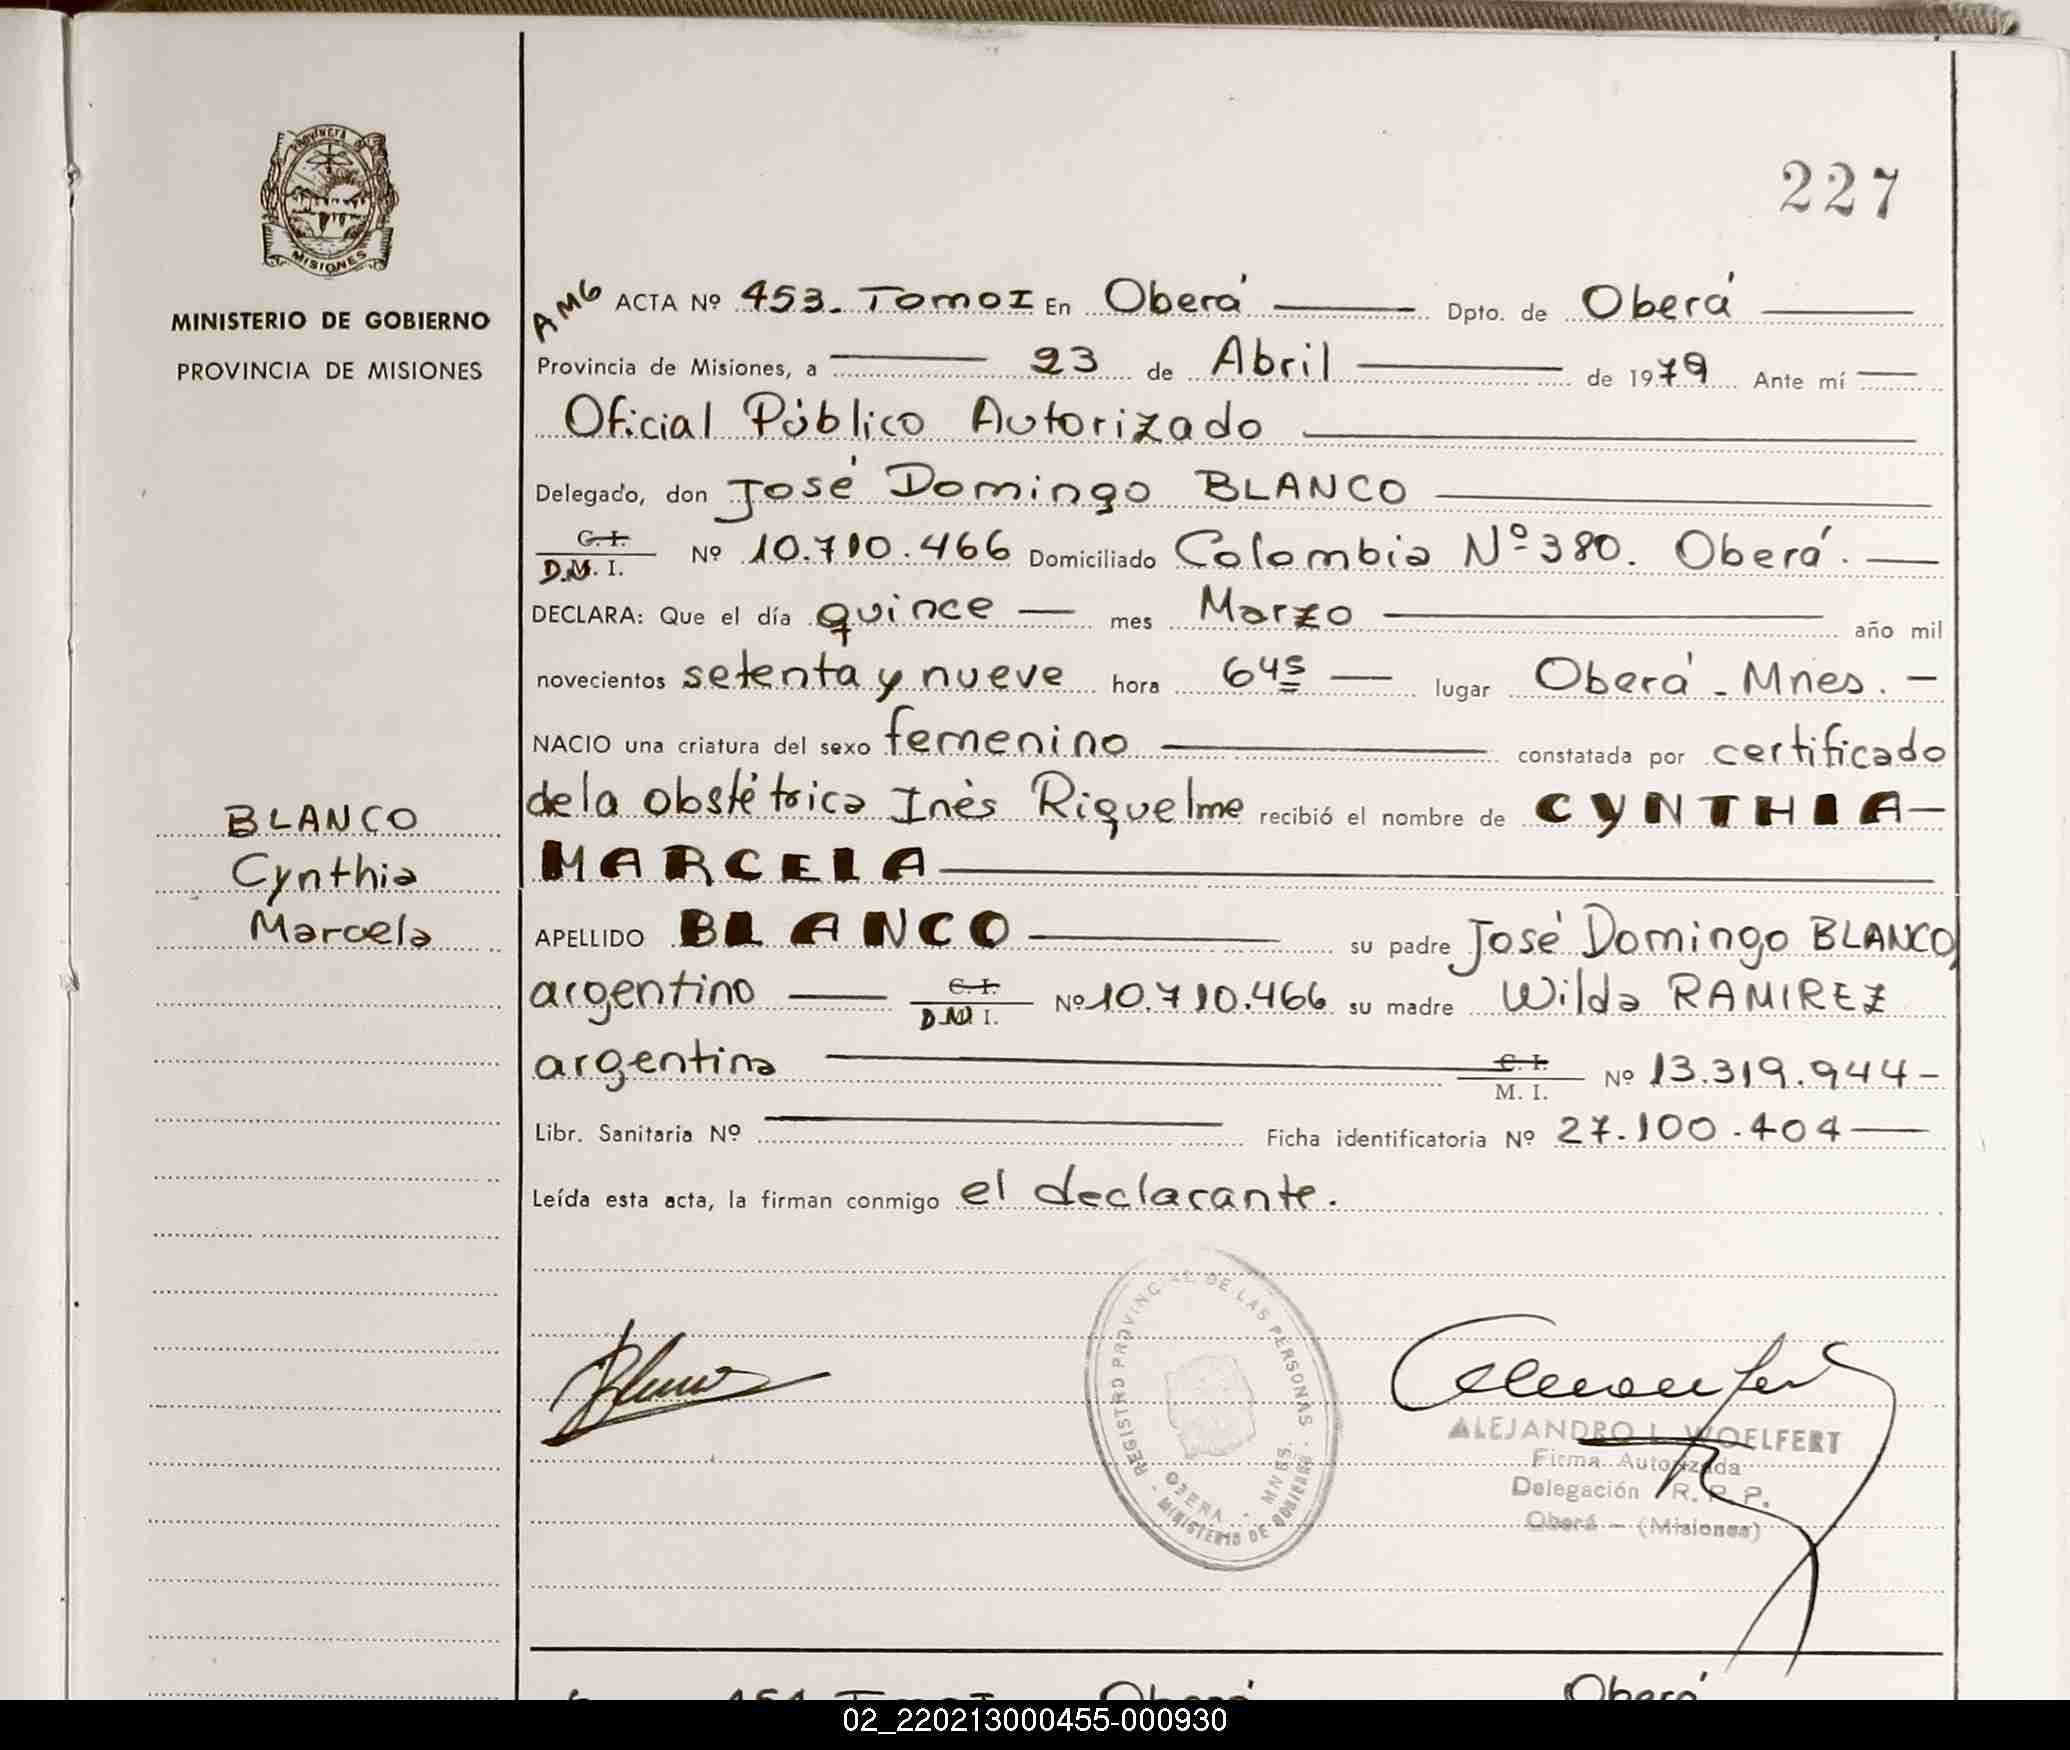 PROVINCIA DE
MISIONES
MINISTERIO DE GOBIERNO
PROVINCIA DE MISIONES
227
AMG ACTA Nº 453. Tomo I En Oberá Dpto. de Oberá
Provincia de Misiones, a 23 de Abril de 1979 Ante mí
Oficial Público Autorizado
Delegado, don José Domingo BLANCO
C. I.
D.M. I. Nº 10.710.466 Domiciliado Colombia Nº 380. Oberá.
DECLARA: Que el día quince mes Marzo año mil
novecientos setenta y nueve hora 6 45 lugar Oberá - Mnes.
NACIO una criatura del sexo femenino constatada por certificado
de la obstétrica Inés Riquelme recibió el nombre de CYNTHIA
MARCELA
BLANCO
Cynthia
Marcela
APELLIDO BLANCO su padre José Domingo BLANCO,
argentino C. I. D.N. I. Nº 10.710.466 su madre Wilda RAMIREZ
argentina C. I. M. I. Nº 13.319.944-
Libr. Sanitaria Nº Ficha identificatoria Nº 27.100.404
Leída esta acta, la firman conmigo el declarante.
REGISTRO PROVINCIAL DE LAS PERSONAS
OBERA - MNES.
MINISTERIO DE GOBIERNO
ALEJANDRO L. WOELFERT
Firma Autorizada
Delegación R. P. P.
Oberá - (Misiones)
454 Tomo I Oberá Oberá
02_220213000455-000930